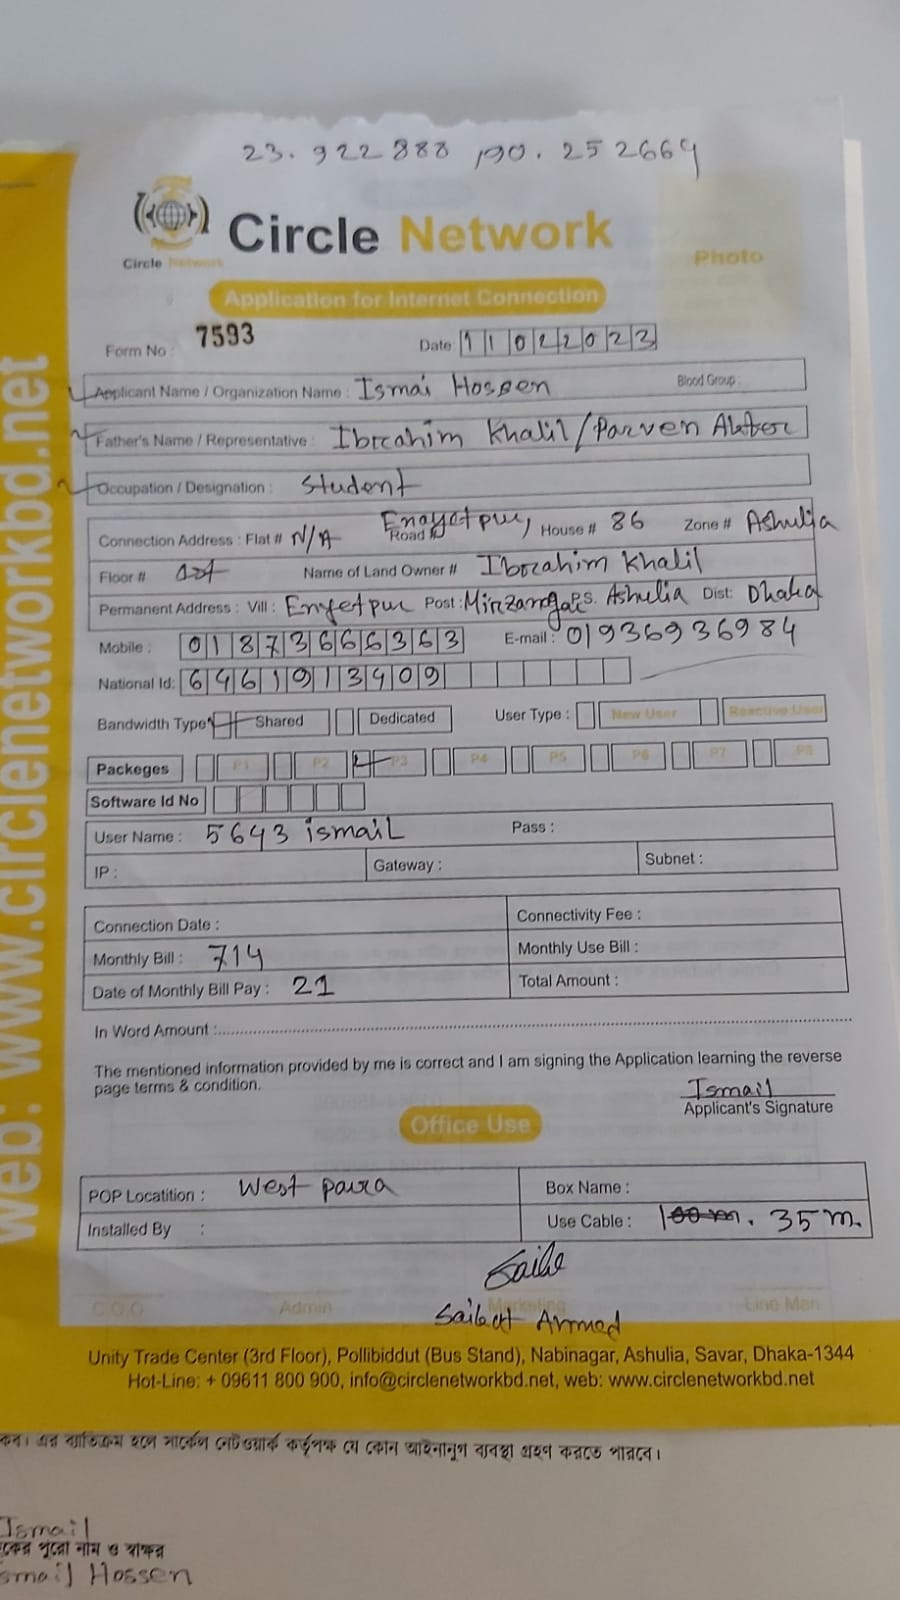 23.922888, 90.252664
Circle Network
Circle Network
Photo
Application for Internet Connection
Form No : 7593 Date: 11022023
Applicant Name / Organization Name : Ismai Hossen Blood Group :
Father's Name / Representative : Ibrahim Khalil / Parven Akter
Occupation / Designation : Student
Connection Address : Flat # N/A Road # Enayetpur, House # 86 Zone # Ashulia
Floor # 1st Name of Land Owner # Ibrahim Khalil
Permanent Address : Vill : Enyetpur Post : P.S. Ashulia Dist: Dhaka
Mobile : 01873666363 E-mail : 01936936984
National Id: 6461913409
Bandwidth Type Shared Dedicated User Type : New User Reactive User
Packeges P1 P2 P3 P4 P5 P6 P7 P8
Software Id No
User Name : 5643 ismail Pass :
IP : Gateway : Subnet :
Connection Date : Connectivity Fee :
Monthly Bill : 714 Monthly Use Bill :
Date of Monthly Bill Pay : 21 Total Amount :
In Word Amount :
The mentioned information provided by me is correct and I am signing the Application learning the reverse
page terms & condition.
Ismail
Applicant's Signature
Office Use
POP Locatition : West para Box Name :
Installed By : Use Cable : 100m. 35m.
Saikat Ahmed
C.O.O Admin Marketing Line Man
Unity Trade Center (3rd Floor), Pollibiddut (Bus Stand), Nabinagar, Ashulia, Savar, Dhaka-1344
Hot-Line: + 09611 800 900, info@circlenetworkbd.net, web: www.circlenetworkbd.net
web: www.circlenetworkbd.net
এর ব্যতিক্রম হলে সার্কেল নেটওয়ার্ক কর্তৃপক্ষ যে কোন আইনানুগ ব্যবস্থা গ্রহণ করতে পারবে।
Ismail
পুরো নাম ও স্বাক্ষর
smail Hossen